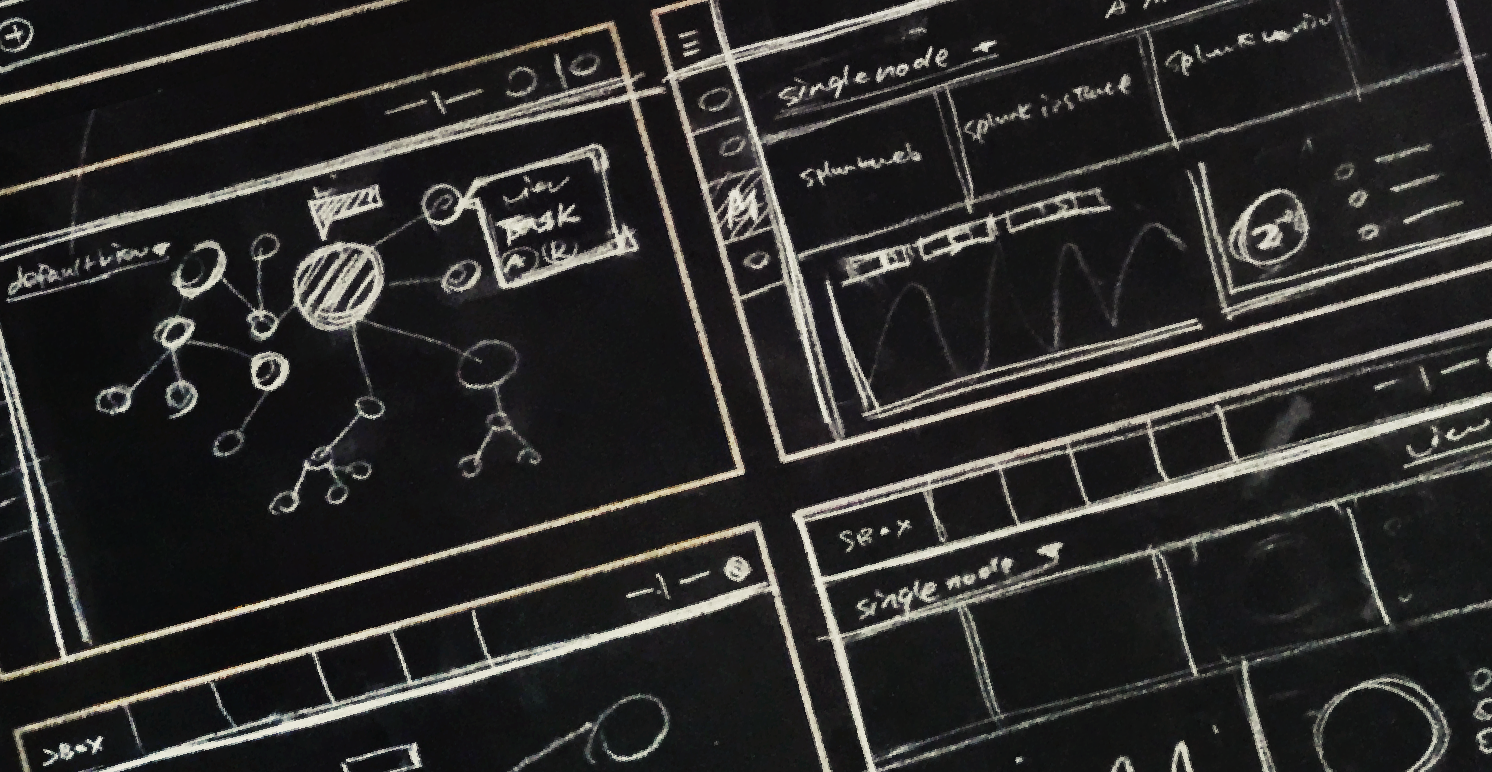 default view
view
TASK
single node
splunk web
splunk instance
2
SBOX
single node
view
SBOX